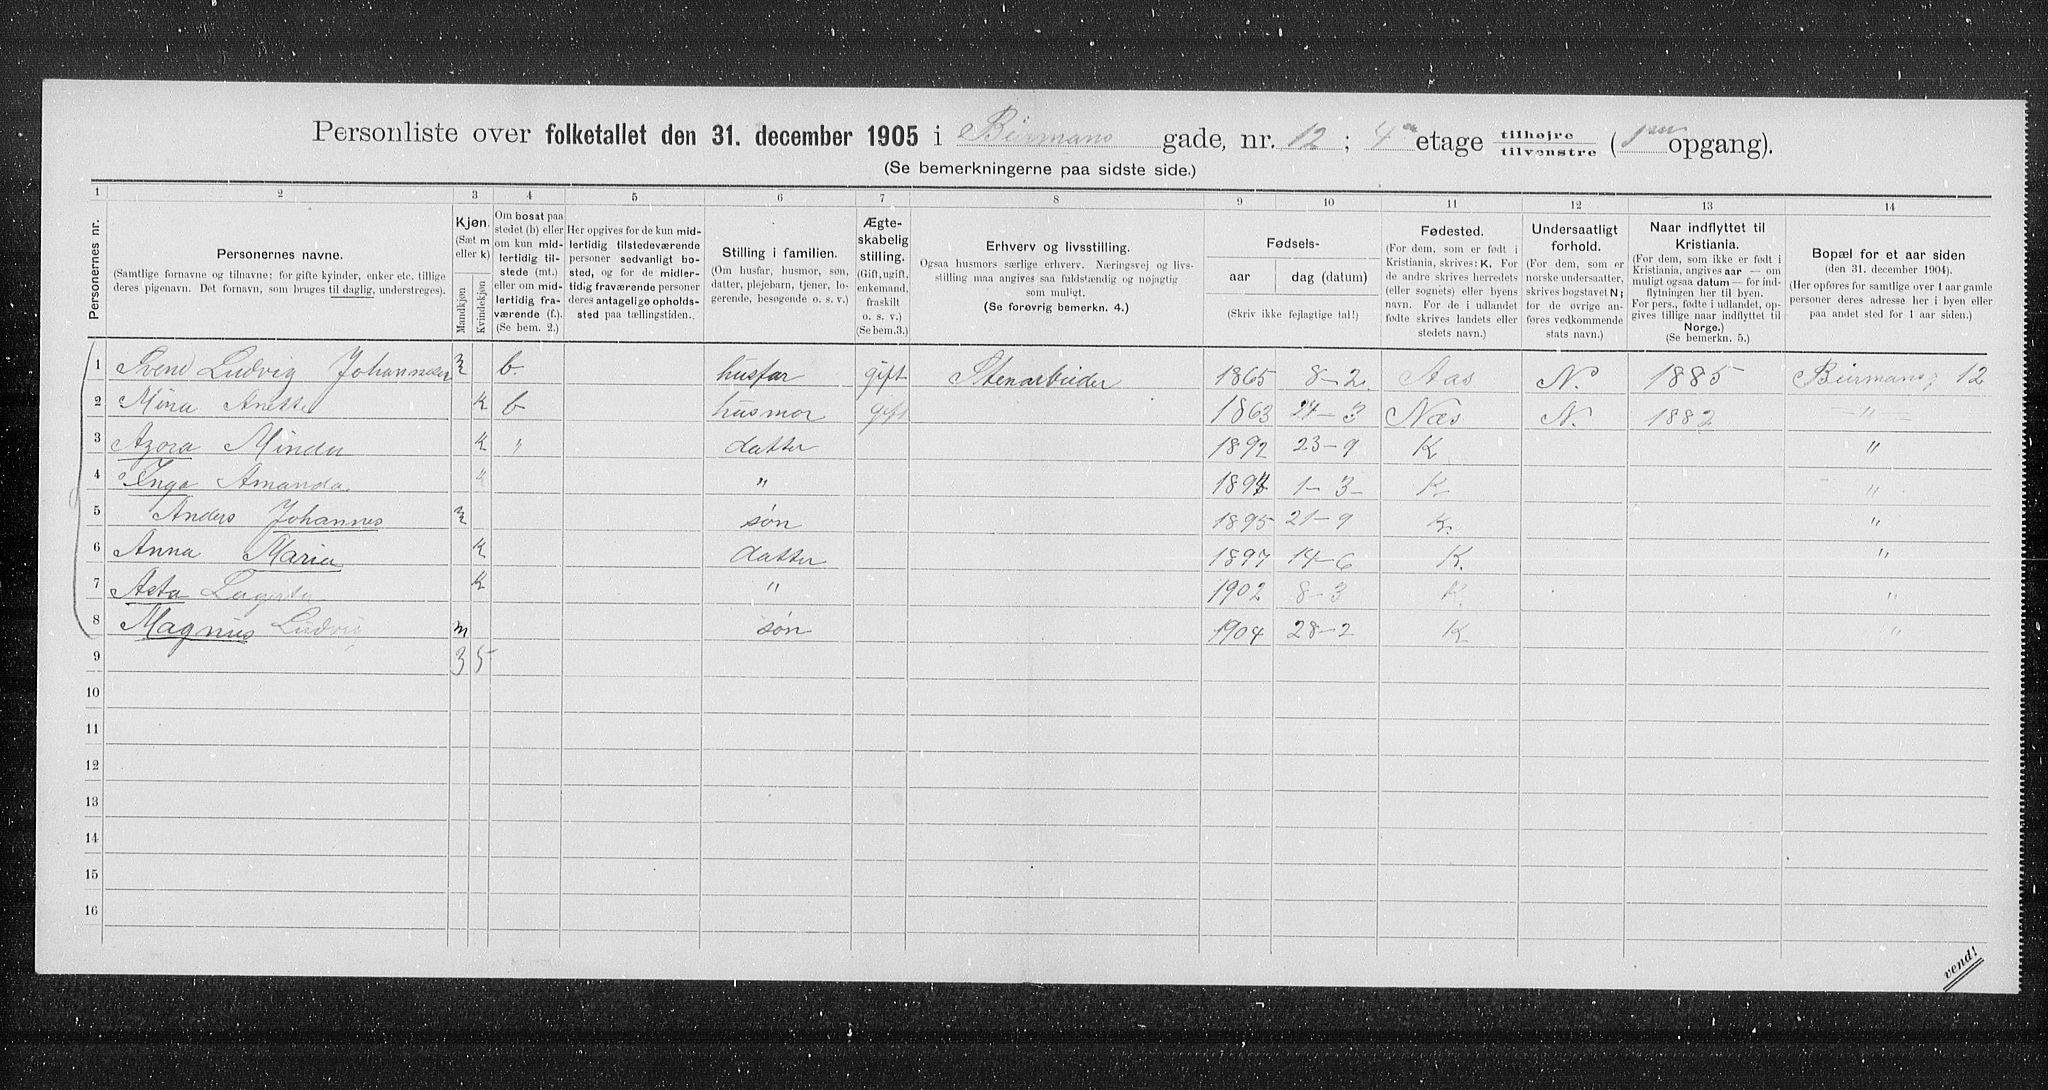 Personliste over folketallet den 31. december 1905 i Biermans gade, nr. 12; 4de etage tilhøjre tilvenstre (1ste opgang).
(Se bemerkningerne paa sidste side.)
1 2 3 4 5 6 7 8 9 10 11 12 13 14
Personernes nr.
Personernes navne.
(Samtlige fornavne og tilnavne; for gifte kvinder, enker etc. tillige deres pigenavn. Det fornavn, som bruges til daglig, understreges).
Kjøn.
(Sæt m eller k)
Mandkjøn
Kvindekjøn
Om bosat paa stedet (b) eller om kun midlertidig tilstede (mt.) eller om midlertidig fraværende (f.). (Se bem. 2.)
Her opgives for de kun midlertidig tilstedeværende personer sedvanligt bosted, og for de midlertidig fraværende personer deres antagelige opholdssted paa tællingstiden.
Stilling i familien.
(Om husfar, husmor, søn, datter, plejebarn, tjener, logerende, besøgende o. s. v.)
Ægteskabelig stilling.
(Gift, ugift, enkemand, fraskilt o. s. v.) (Se bem. 3.)
Erhverv og livsstilling.
Ogsaa husmors særlige erhverv. Næringsvej og livsstilling maa angives saa fuldstændig og nøjagtig som muligt.
(Se forøvrig bemerkn. 4.)
Fødsels-
aar
dag (datum)
(Skriv ikke fejlagtige tal!)
Fødested.
(For dem, som er født i Kristiania, skrives: K. For de andre skrives herredets (eller sognets) eller byens navn. For de i udlandet fødte skrives landets eller stedets navn.)
Undersaatligt forhold.
(For dem, som er norske undersaatter, skrives bogstavet N; for de øvrige anføres vedkommende stats navn.)
Naar indflyttet til Kristiania.
(For dem, som ikke er født i Kristiania, angives aar — om muligt ogsaa datum — for indflytningen her til byen. For pers., fødte i udlandet, opgives tillige naar indflyttet til Norge.)
(Se bemerkn. 5.)
Bopæl for et aar siden
(den 31. december 1904).
(Her opføres for samtlige over 1 aar gamle personer deres adresse her i byen eller paa andet sted for 1 aar siden.)
1 Svend Ludvig Johannesen m b. husfar gift Stenarbeider 1865 8-2. Aas N. 1885 Biermansg 12
2 Mina Anette k b husmor gift 1863 27-3 Næs N. 1882 —"—
3 Azora Minda k " datter 1892 23-9 K "
4 Inga Amanda k " 1894 1-3- K "
5 Anders Johannes m søn 1895 21-9 K. "
6 Anna Maria k datter 1897 14-6 K. "
7 Asta k " 1902 8-3 K. "
8 Magnus Ludvig m søn 1904 28-2 K "
9 3 5
10
11
12
13
14
15
16
vend!